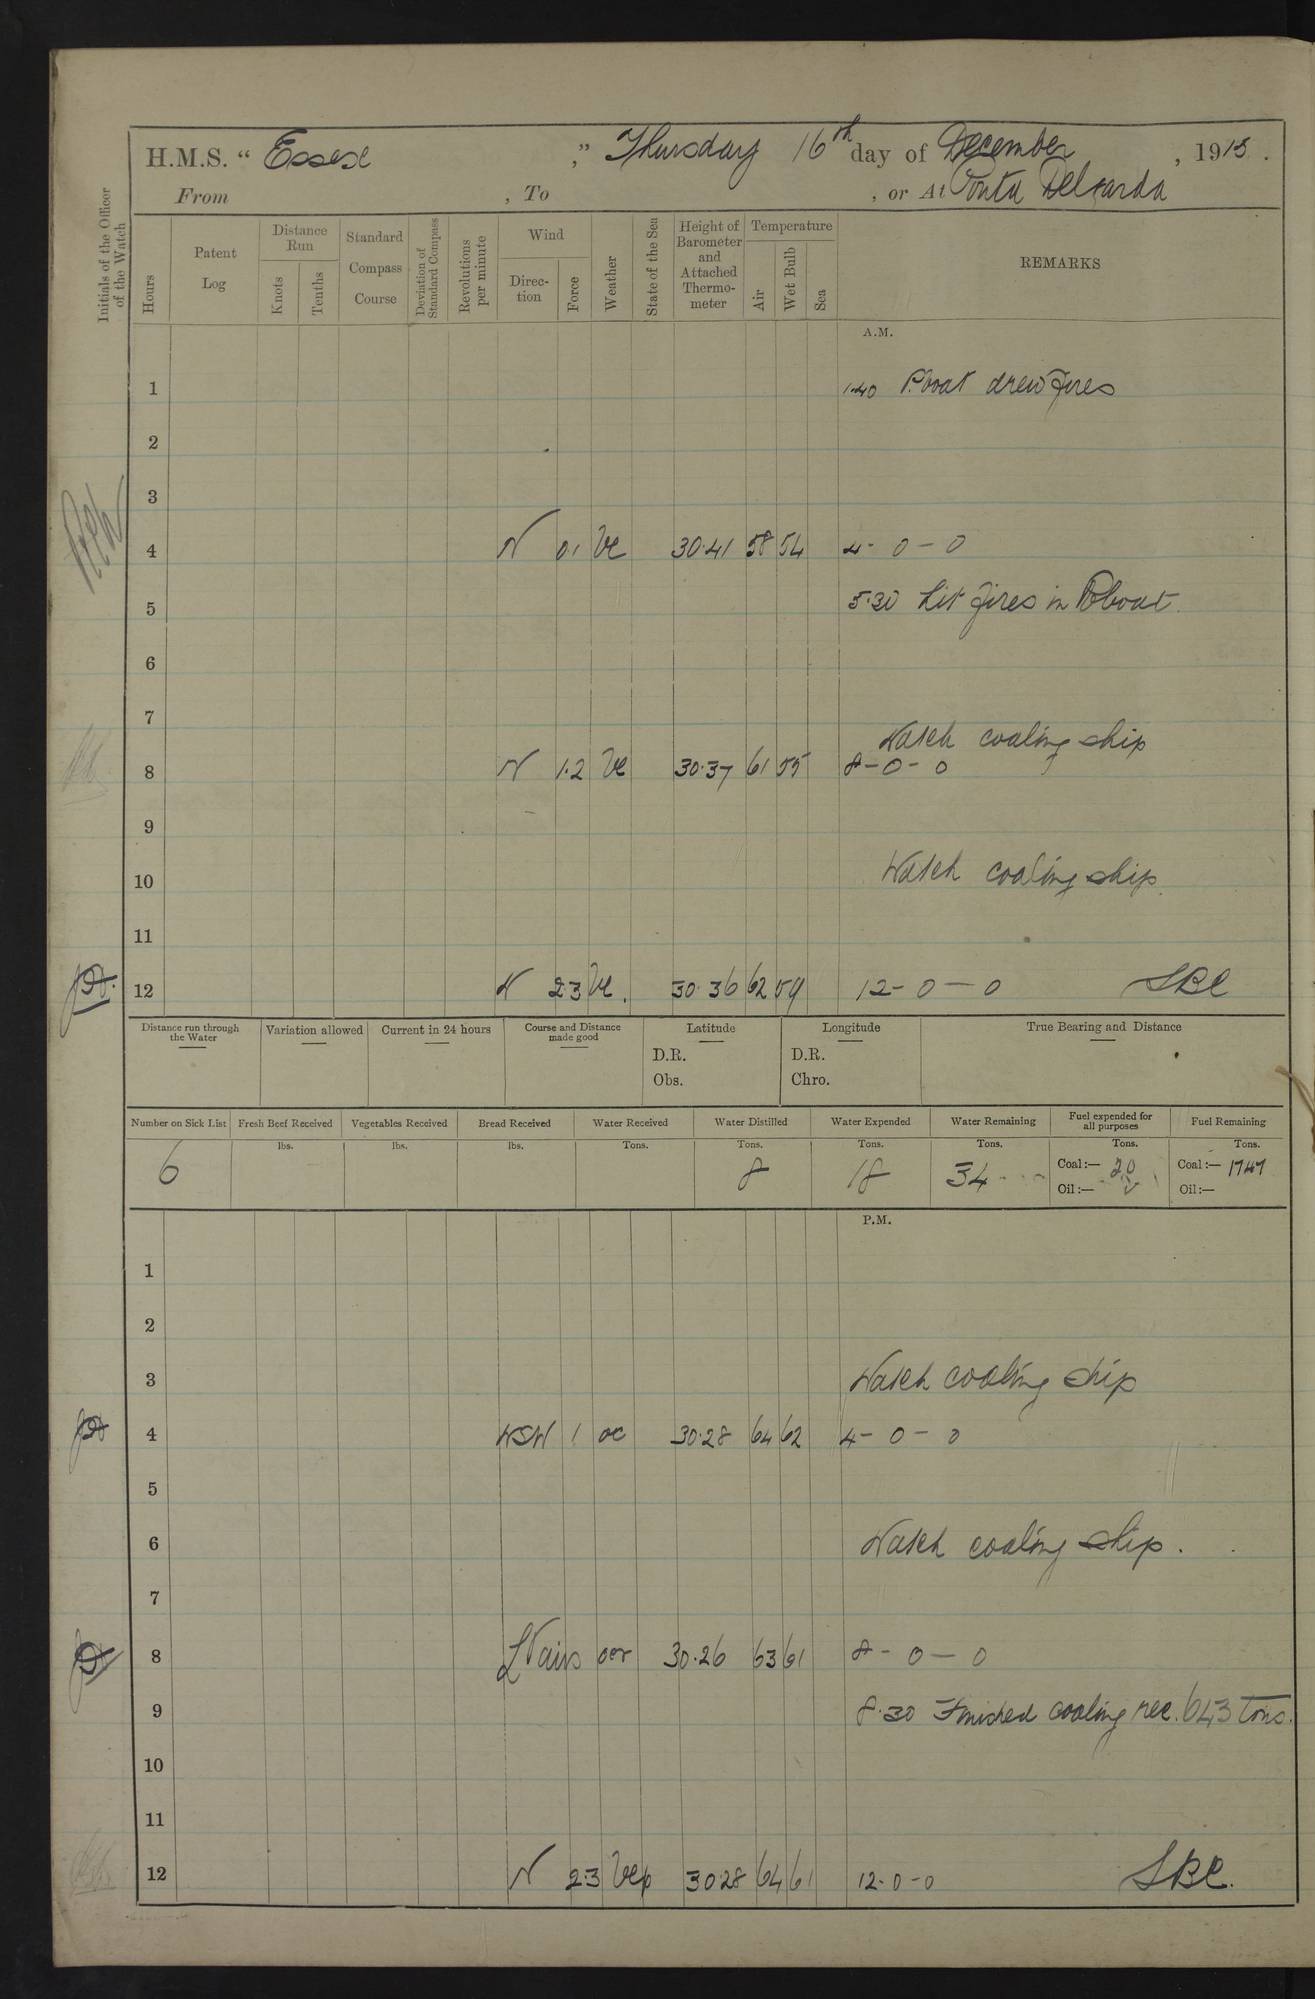 H.M.S. " Essex ," Thursday 16th day of December , 1915 .
From , To , or At Ponta Delgarda
Initials of the Officer of the Watch
Hours
Patent Log
Distance Run
Knots
Tenths
Standard Compass Course
Deviation of Standard Compass
Revolutions per minute
Wind
Direc-tion
Force
Weather
State of the Sea
Height of Barometer and Attached Thermo-meter
Temperature
Air
Wet Bulb
Sea
REMARKS
A.M.
1 1.40 P.boat drew fires
2
3
4 N 0.1 bc 30.41 58 54 4 - 0 - 0
5 5.30 Lit fires in P.boat.
6
7
Watch coaling ship
8 N 1.2 bc 30.37 61 55 8 - 0 - 0
9
10 Watch coaling ship.
11
12 N 2.3 bc. 30.36 62 59 12 - 0 - 0 SBC
Distance run through the Water
Variation allowed
Current in 24 hours
Course and Distance made good
Latitude
D.R.
Obs.
Longitude
D.R.
Chro.
True Bearing and Distance
Number on Sick List Fresh Beef Received Vegetables Received Bread Received Water Received Water Distilled Water Expended Water Remaining Fuel expended for all purposes Fuel Remaining
lbs. lbs. lbs. Tons. Tons. Tons. Tons. Tons. Tons.
6 8 18 34 Coal:— 20 Coal:— 1747
Oil:— Oil:—
P.M.
1
2
3 Watch coaling ship
4 WSW 1 oc 30.28 64 62 4 - 0 - 0
5
6 Watch coaling ship.
7
8 Lt airs ocr 30.26 63 61 8 - 0 - 0
9 8.30 Finished coaling rec. 643 tons.
10
11
12 N 2.3 bcp 30.28 64 61 12 - 0 - 0 SBC.